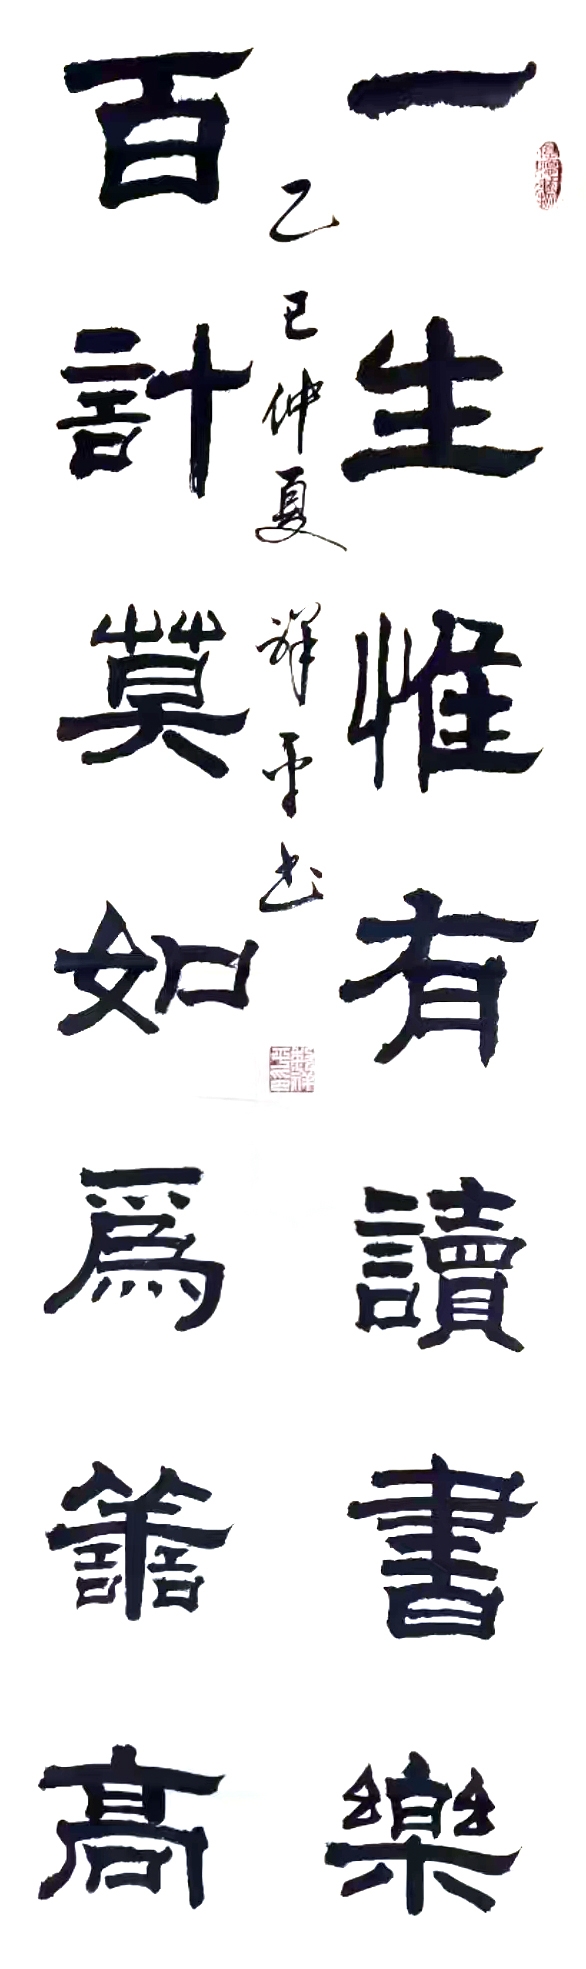 一生惟有讀書樂
百計莫如爲善高
乙巳仲夏 祥平书